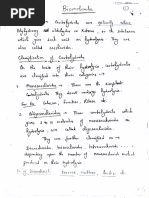 Biomolecules
Carbohydrates are actually optically active
Polyhydroxy aldehydes or Ketones, or the substances
which give such unit on hydrolysis. They are
also called saccharides.
Classification of Carbohydrates
On the basis of their hydrolysis carbohydrates
are classified into three categories :-
1. Monosaccharides → These are the simplest
Carbohydrates they cannot be hydrolysed
further
For Ex. Glucose, fructose, Ribose etc.
2. Oligosaccharides → These carbohydrates which
give 2 to molecules of monosaccharides on
hydrolysis are called oligosaccharides.
They are further classified as
Disaccharide, trisaccharides, tetrasaccharides
depending upon the number of monosaccharide
product on their hydrolysis
Sucrose, maltose, lactose etc